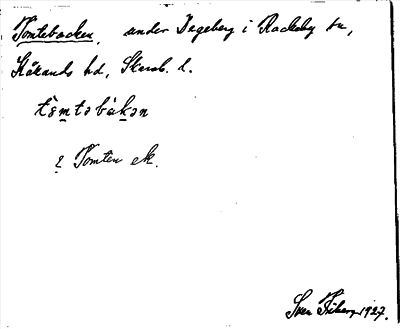 Tomtebacken, under Degeberg i Rackeby sn,
Kållands hd, Skarab. l.
tòmtəbákən
2 Tomten ek.
Sven Fiberg 1927.